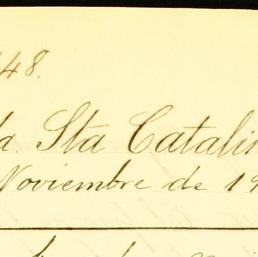 148.
la Sta Catali
Noviembre de 19